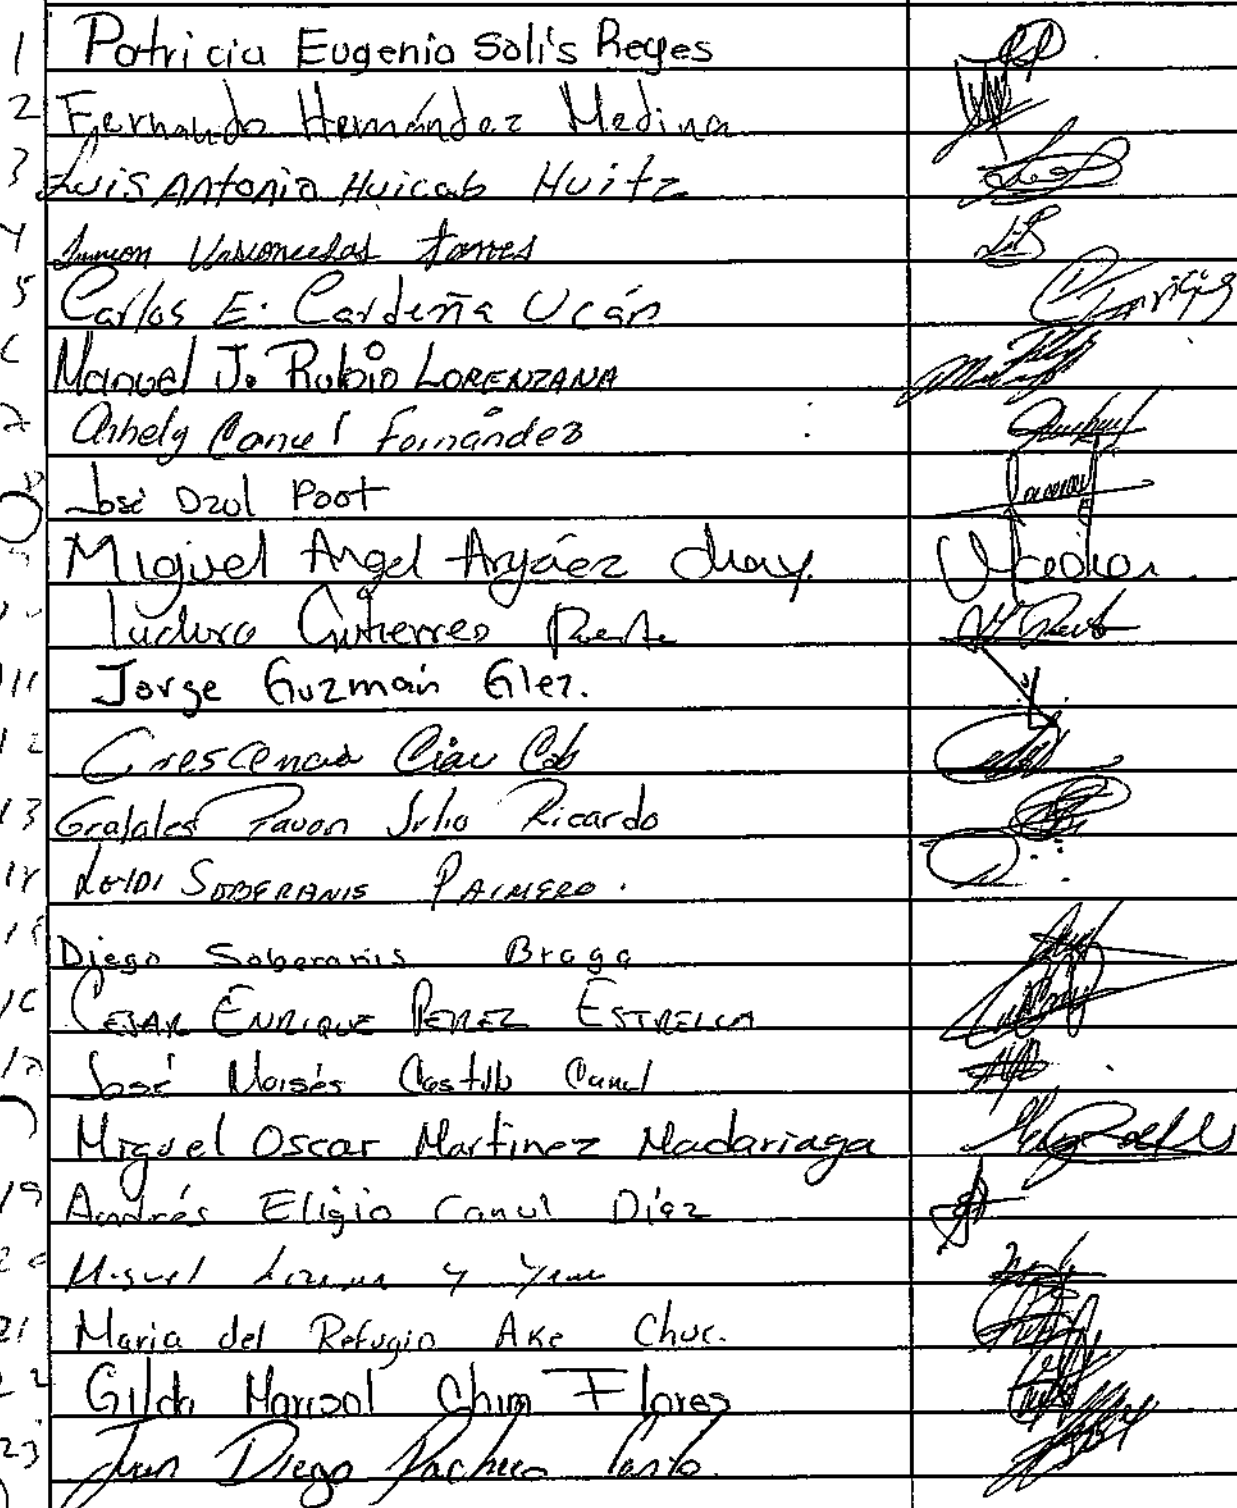 1 Patricia Eugenia Solís Reyes
2 Fernando Hernández Medina
3 Luis Antonio Huicab Huitz
4 Vasconcelos Torres
5 Carlos E. Cardeña Ucán Enrique
6 Manuel J. Rubio LORENZANA
7 Canul Fernández
José Dzul Poot
Miguel Angel Arjáez Chay.
Gutierres
11 Jorge Guzmán Glez.
12 Crescencio Ciau Cob
13 Grajales Pavon Julio Ricardo
14 LEIDI SOBERANIS PALMERO.
15 Diego Soberanis Braga
16 CESAR ENRIQUE PEREZ ESTRELLA
17 José Moisés Castillo Canul
Miguel Oscar Martinez Madariaga
19 Andrés Eligio Canul Díaz
20 Miguel y
21 Maria del Refugio Ake Chuc.
22 Gilda Marisol Chim Flores
23 Juan Diego Pacheco